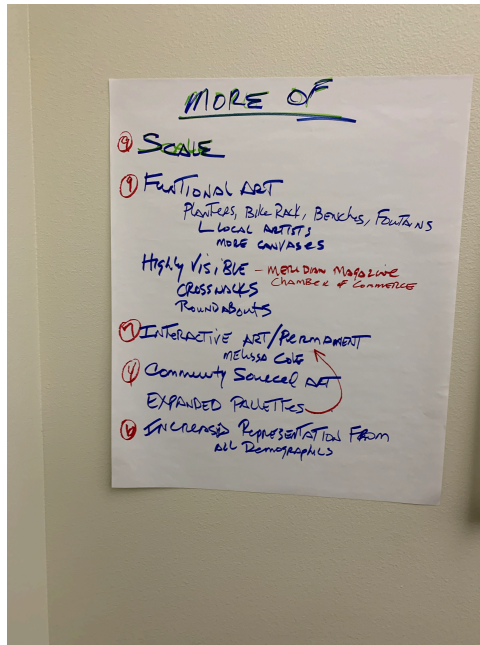 MORE OF
9 SCALE
9 FUNTIONAL ART
PLANTERS, BIKE RACK, BENCHES, FOUNTAINS
LOCAL ARTISTS
MORE CANVASES
HIGHLY VISIBLE – MERIDIAN MAGAZINE
CHAMBER of COMMERCE
CROSSWALKS
ROUNDABOUTS
7 INTERACTIVE ART/PERMANENT
MELISSA COLE
4 COMMUNITY SOURCED ART
EXPANDED PALLETTES
6 INCREASED REPRESENTATION FROM
ALL DEMOGRAPHICS